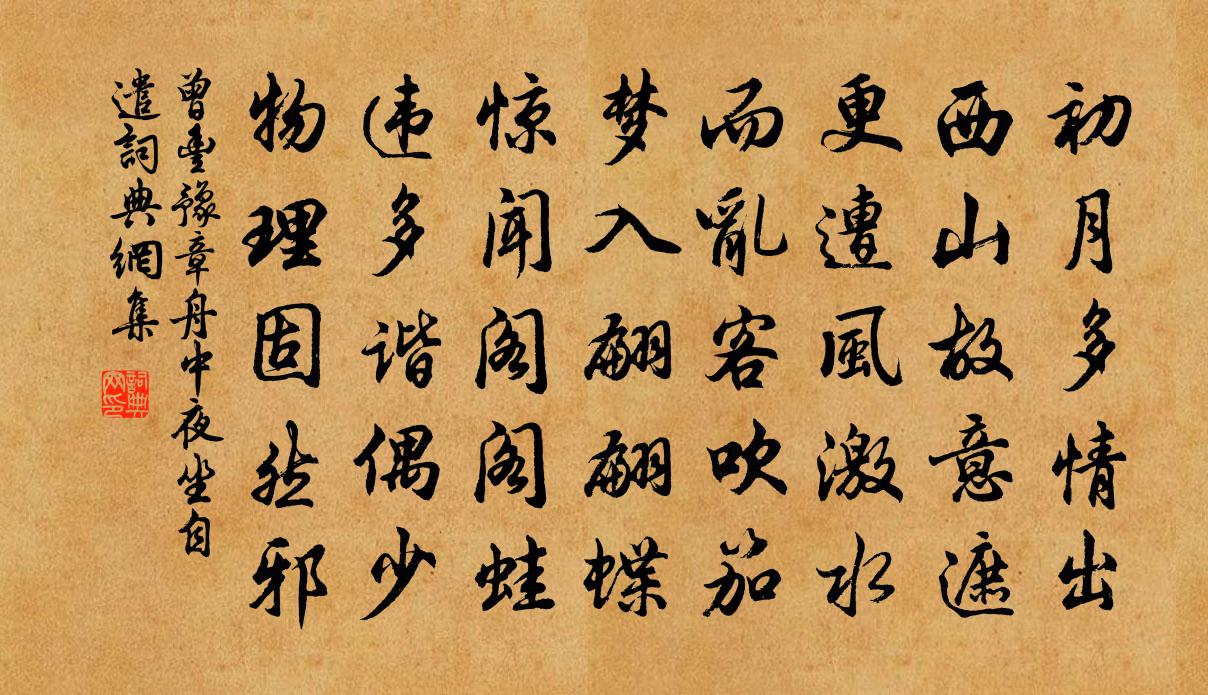 初月多情出
西山故意遮
更遭風激水
而亂客吹笳
梦入翩翩蝶
惊闻阁阁蛙
违多谐偶少
物理固然邪
曾豊豫章舟中夜坐自
遣詞典網集
詞典